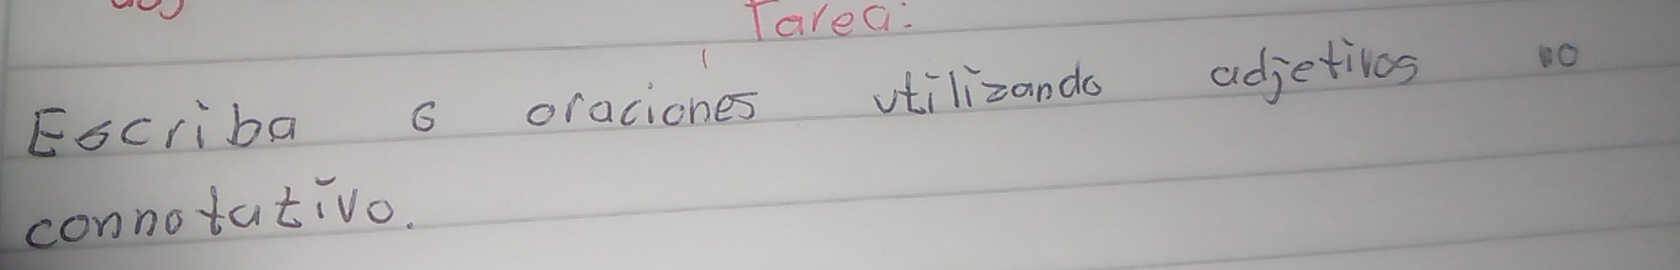 Tarea:
Escriba 6 oraciones utilizando adjetivos no
connotativo.